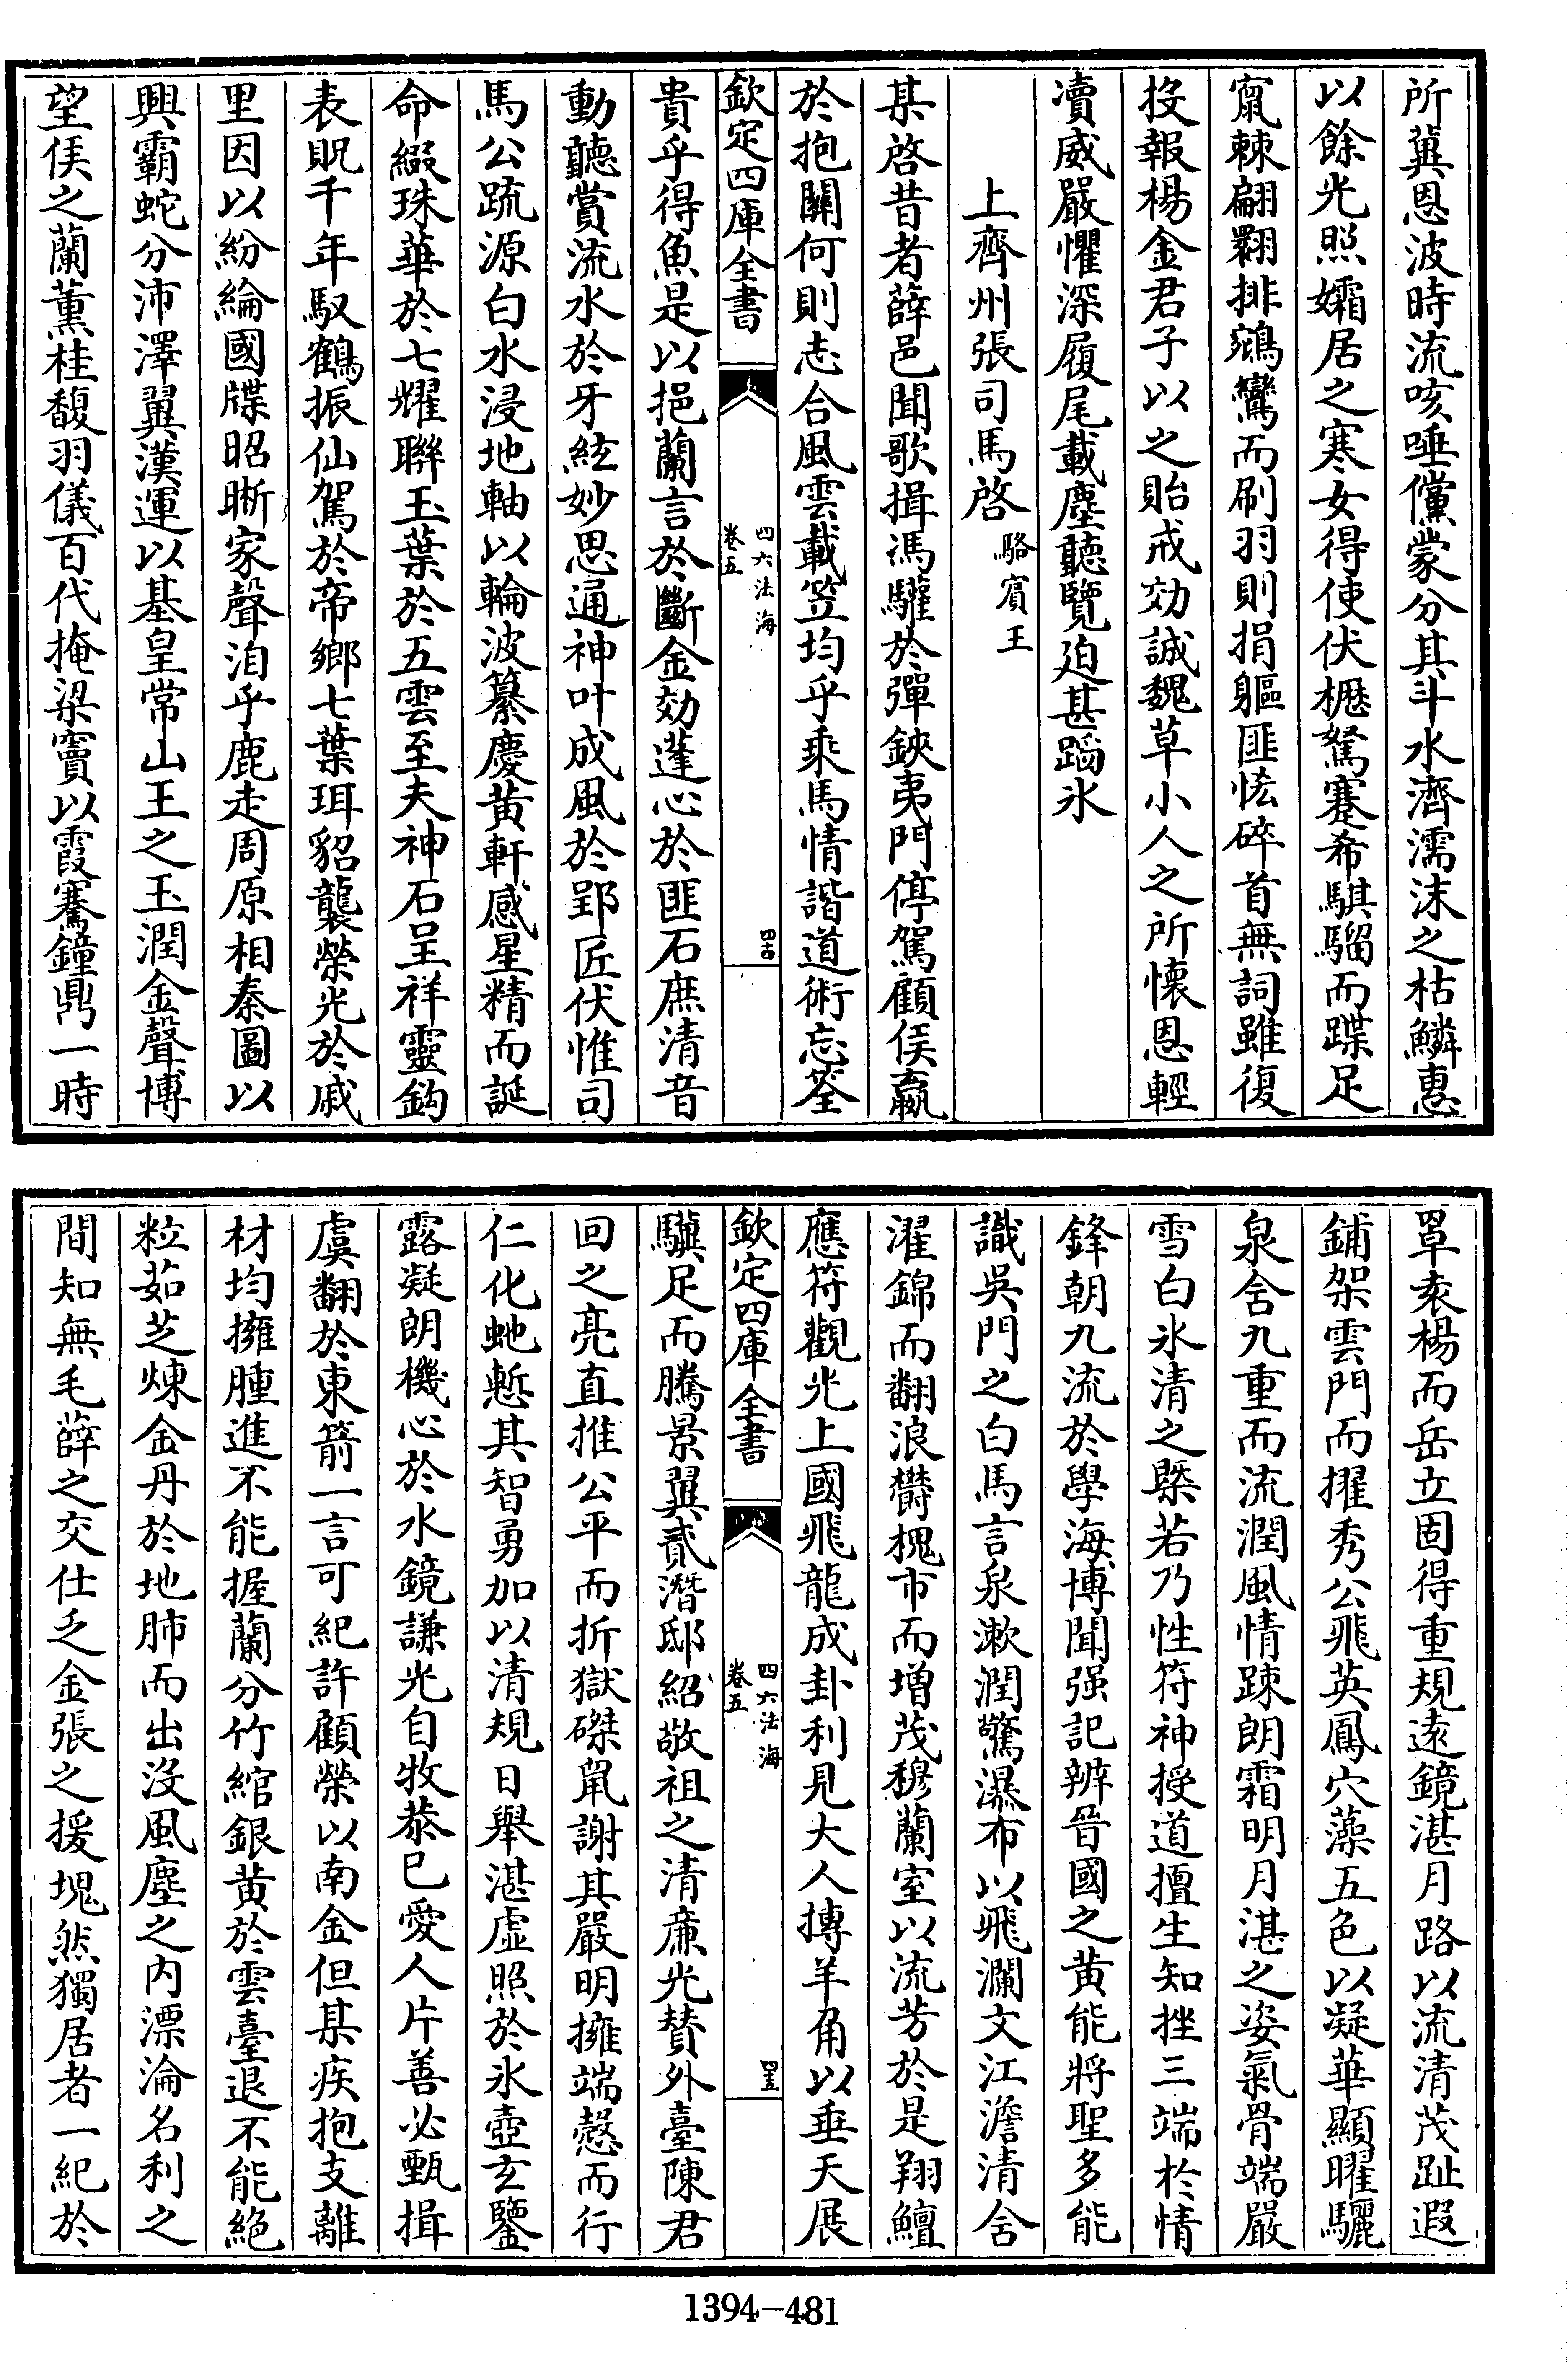 所冀恩波時流咳唾儻蒙分其斗水濟濡沫之枯鱗惠
以餘光照孀居之寒女得使伏櫪駑蹇希騏騮而蹀足
竄棘翩翾排鵷鸞而刷羽則捐軀匪恡碎首無詞雖復
投報楊金君子以之貽戒効誠魏草小人之所懷恩輕
凟威嚴懼深履尾載塵聽覽廹甚蹈氷
上齊州張司馬啓 駱賓王
某啓昔者薛邑聞歌揖馮驩於彈鋏夷門停駕顧侯嬴
於抱關何則志合風雲載笠均乎乘馬情諧道術忘筌
欽定四庫全書 四六法海 卷五 四十四
貴乎得魚是以挹蘭言於斷金効蓬心於匪石庶清音
動聽賞流水於牙絃妙思通神叶成風於郢匠伏惟司
馬公疏源白水浸地軸以輪波纂慶黄軒感星精而誕
命綴珠華於七燿聯玉葉於五雲至夫神石呈祥靈鈎
表貺千年馭鶴振仙駕於帝鄉七葉珥貂襲榮光於戚
里因以紛綸國牒昭晰家聲洎乎鹿走周原相秦圖以
興霸蛇分沛澤翼漢運以基皇常山王之玉潤金聲博
望侯之蘭薫桂馥羽儀百代掩梁竇以霞騫鐘鼎一時
罩袁楊而岳立固得重規遠鏡湛月路以流清茂趾遐
鋪架雲門而擢秀公飛英鳳穴藻五色以凝華顯曜驪
泉含九重而流潤風情踈朗霜明月湛之姿氣骨端嚴
雪白氷清之槩若乃性符神授道擅生知挫三端於情
鋒朝九流於學海博聞强記辨晉國之黄能將聖多能
識吳門之白馬言泉漱潤驚瀑布以飛瀾文江澹清含
濯錦而翻浪欝槐市而增茂穆蘭室以流芳於是翔鱣
應符觀光上國飛龍成卦利見大人摶羊角以垂天展
欽定四庫全書 四六法海 卷五 四十五
驥足而騰景翼貳潛邸紹敬祖之清㢘光賛外臺陳君
回之亮直推公平而折獄磔䑕謝其嚴明擁端慤而行
仁化虵慙其智勇加以清規日舉湛虚照於氷壺玄鑒
露凝朗機心於水鏡謙光自牧恭已愛人片善必甄揖
虞翻於東箭一言可紀許顧榮以南金但某疾抱支離
材均擁腫進不能握蘭分竹綰銀黄於雲臺退不能絶
粒茹芝煉金丹於地肺而出没風塵之内漂淪名利之
間知無毛薛之交仕乏金張之援塊然獨居者一紀於
1394-481